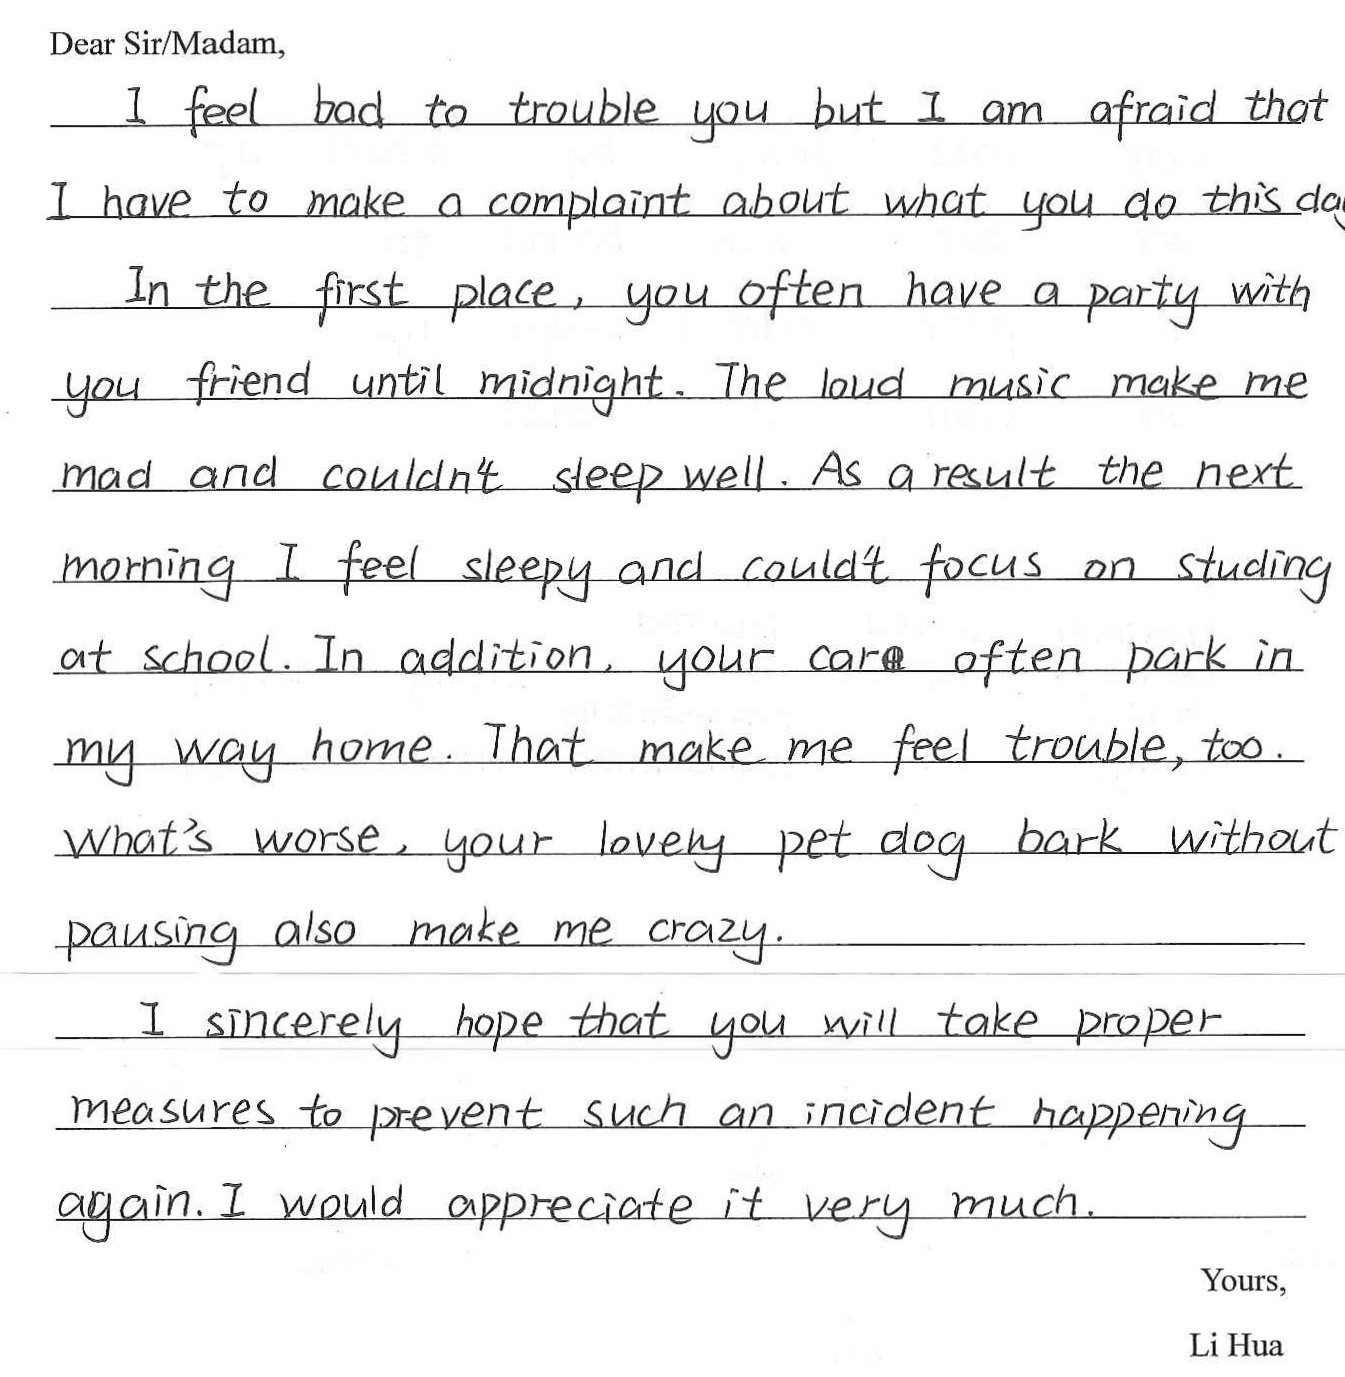 Dear Sir/Madam,
I feel bad to trouble you but I am afraid that
I have to make a complaint about what you do this day
In the first place, you often have a party with
you friend until midnight. The loud music make me
mad and couldn't sleep well. As a result the next
morning I feel sleepy and could't focus on studing
at school. In addition, your car often park in
my way home. That make me feel trouble, too.
What's worse, your lovely pet dog bark without
pausing also make me crazy.
I sincerely hope that you will take proper
measures to prevent such an incident happening
again. I would appreciate it very much.
Yours,
Li Hua